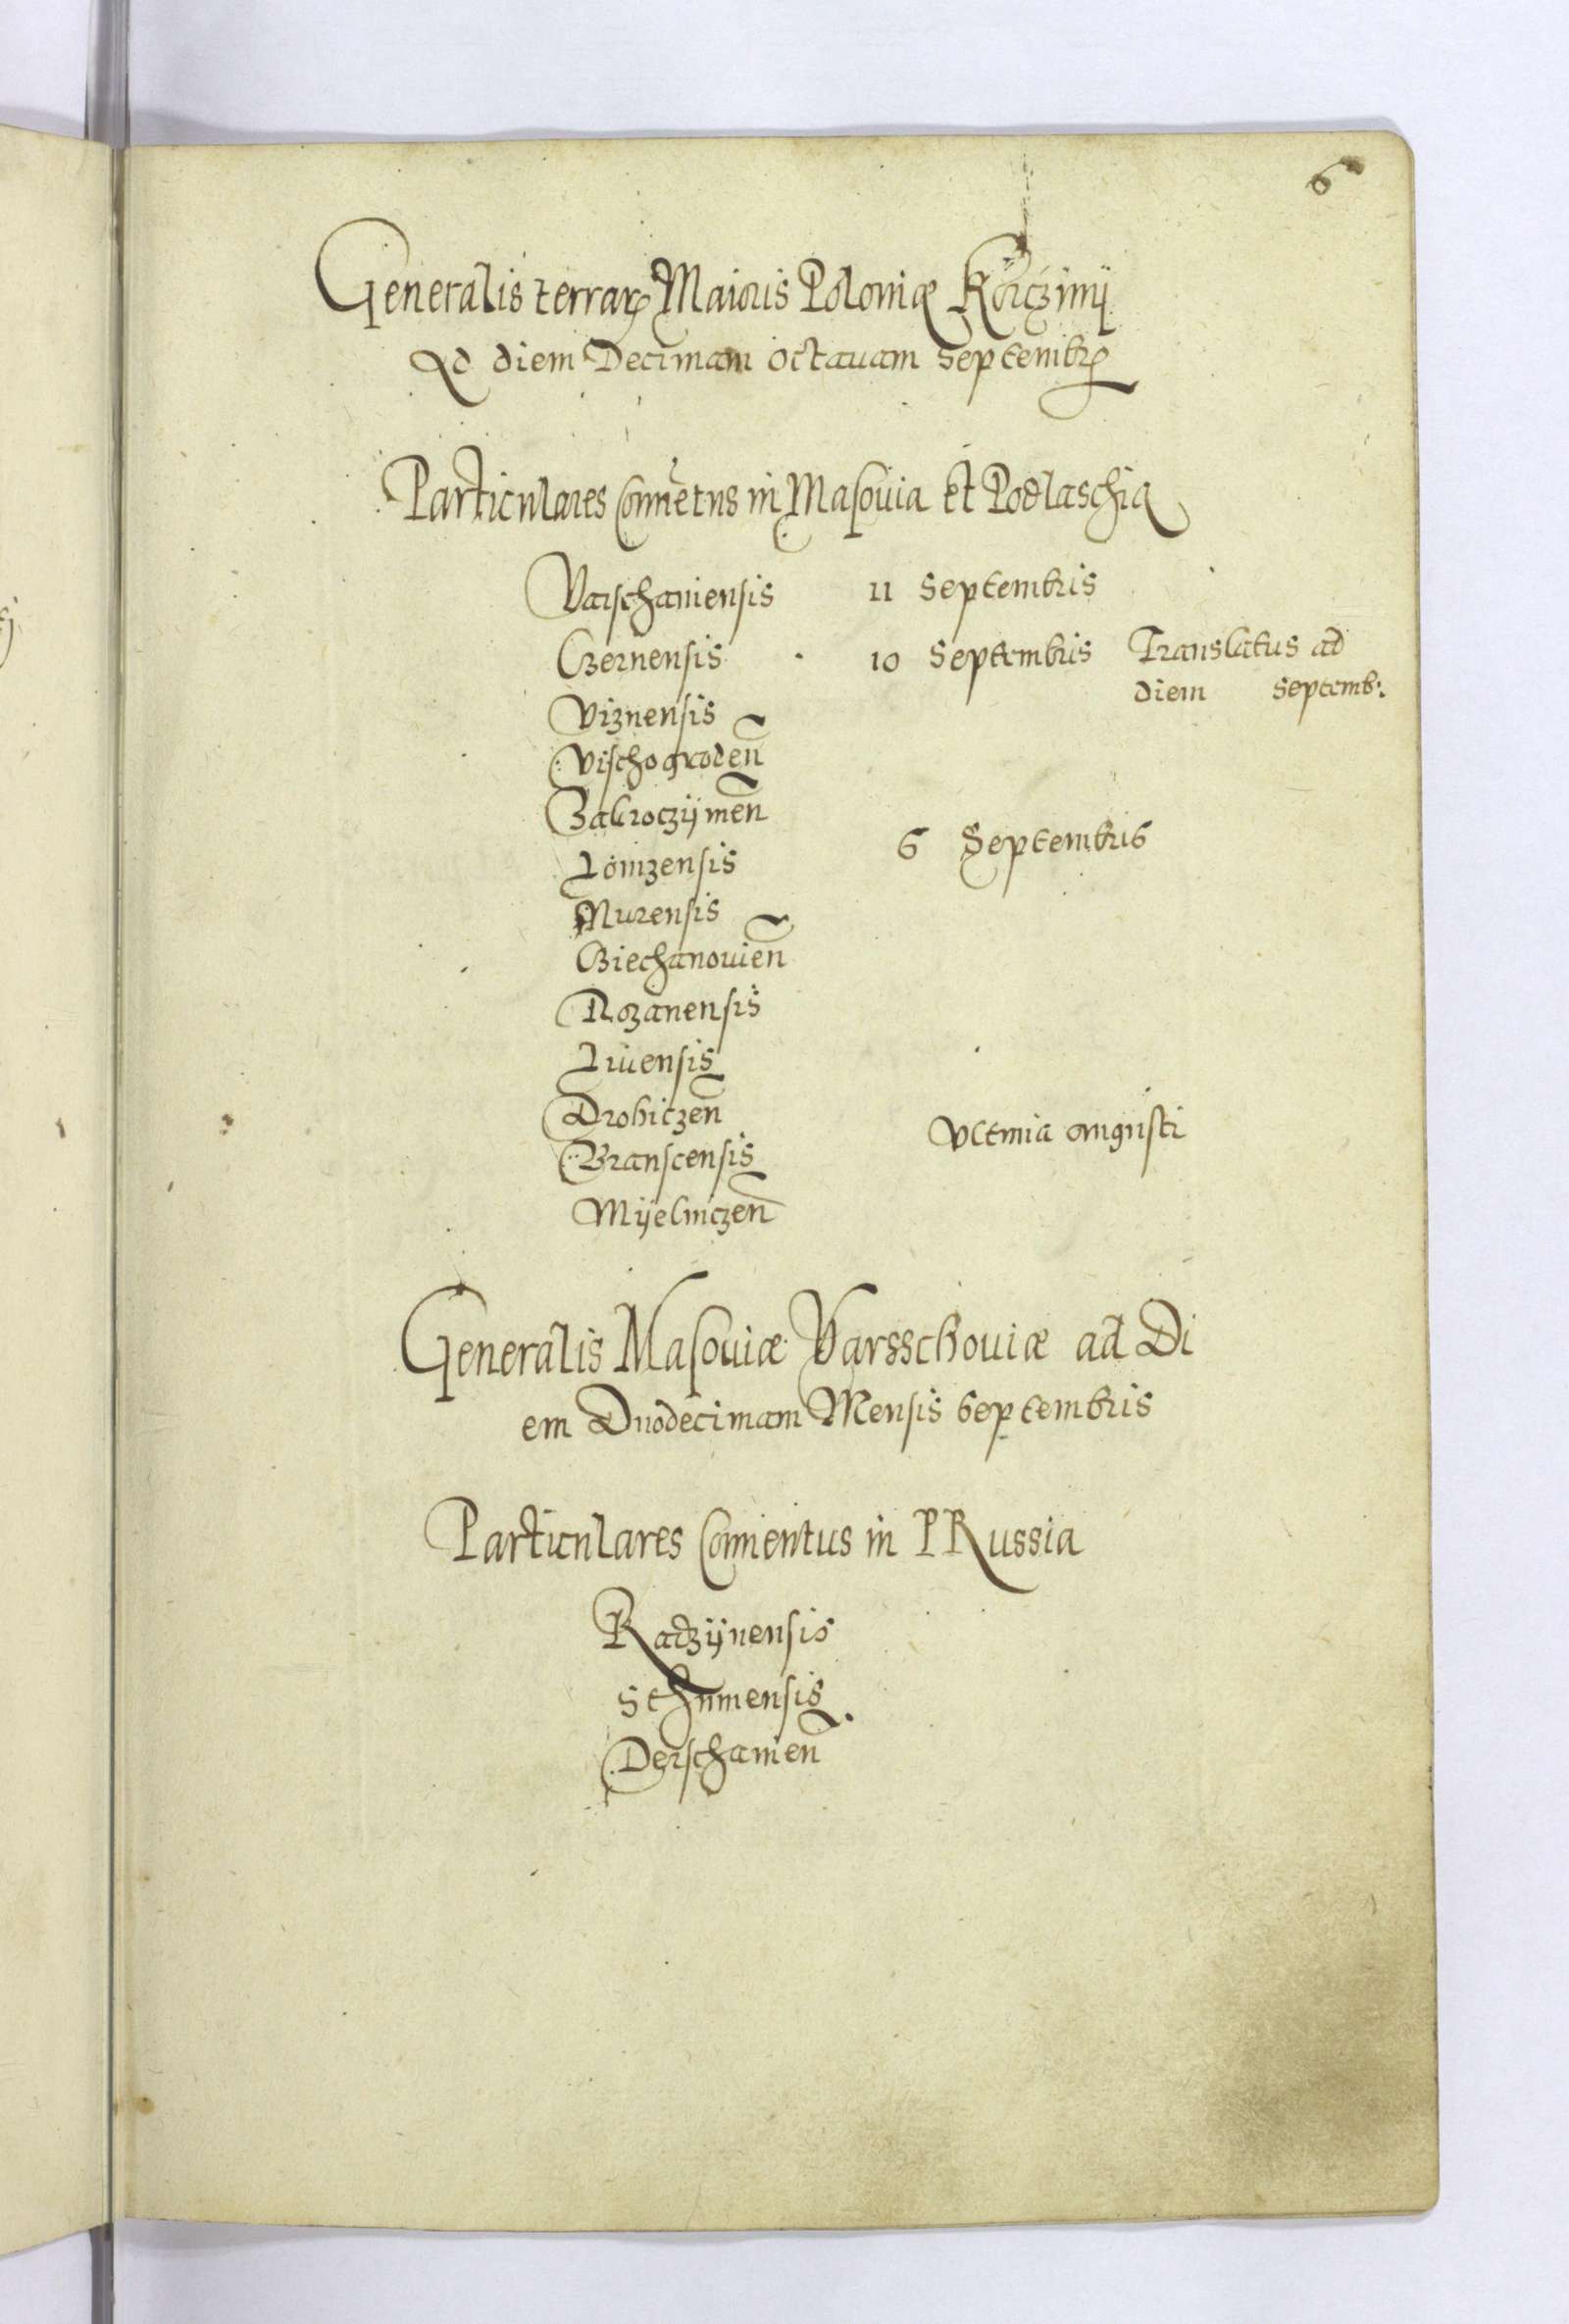 6
Generalis terrarꝝ Maioris Poloniæ Korczinij
Ad diem Decimam octauam Septembrꝭ
Particulares Conuetus in Masouia et Podlaschia
Varschauiensis 11 Septembris
Czernensis 10 Septembris Translatus ad
diem Septemb:
Viznensis
Vischogroden̄
Zakroczÿmen̄
Lomzensis 6 Septembris
Nurensis
Cziechanouien̄
Rozanensis
Liuensis
Drohiczen̄ Vltima augusti
Branscensis
Mÿelniczen̄
Generalis Masouiæ Varsschouiæ ad Di
em Duodecimam Mensis Septembris
Particulares Conuentus in PRussia
Radzÿnensis
Sthumensis
Derschauien̄